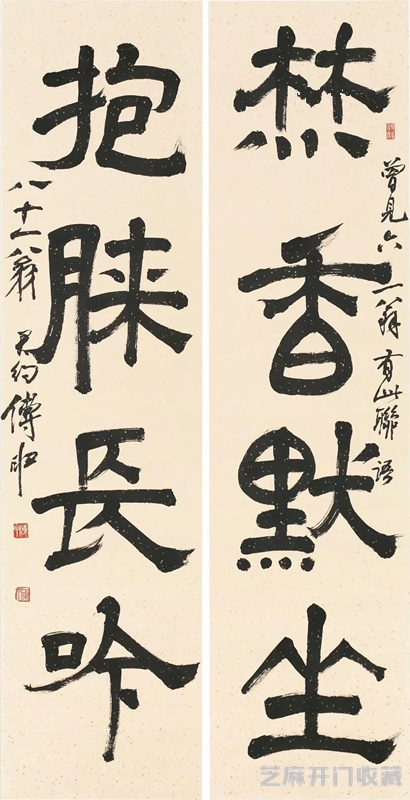 焚香默坐
曾見六一翁有此聯語
抱膝長吟
八十一翁君約傅申
芝麻开门收藏